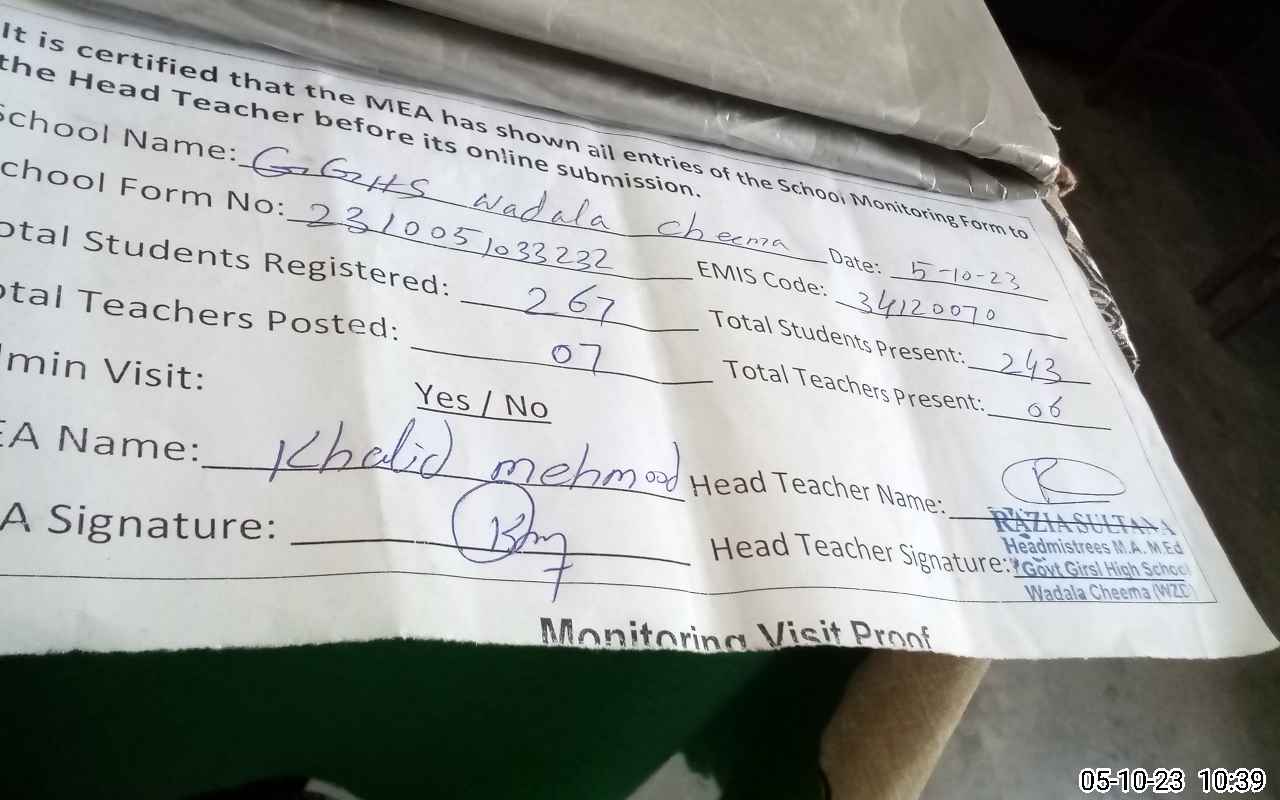 It is certified that the MEA has shown all entries of the School Monitoring Form to
the Head Teacher before its online submission.
School Name: GGHS Wadala Cheema Date: 5-10-23
chool Form No: 2310051033232 EMIS Code: 34120070
otal Students Registered: 267 Total Students Present: 243
otal Teachers Posted: 07 Total Teachers Present: 06
min Visit: Yes / No
EA Name: Khalid mehmood Head Teacher Name:
A Signature: Head Teacher Signature:
RAZIA SULTANA
Headmistrees M.A. M.Ed
Govt Girsl High School
Wadala Cheema (WZD)
Monitoring Visit Proof
05-10-23 10:39